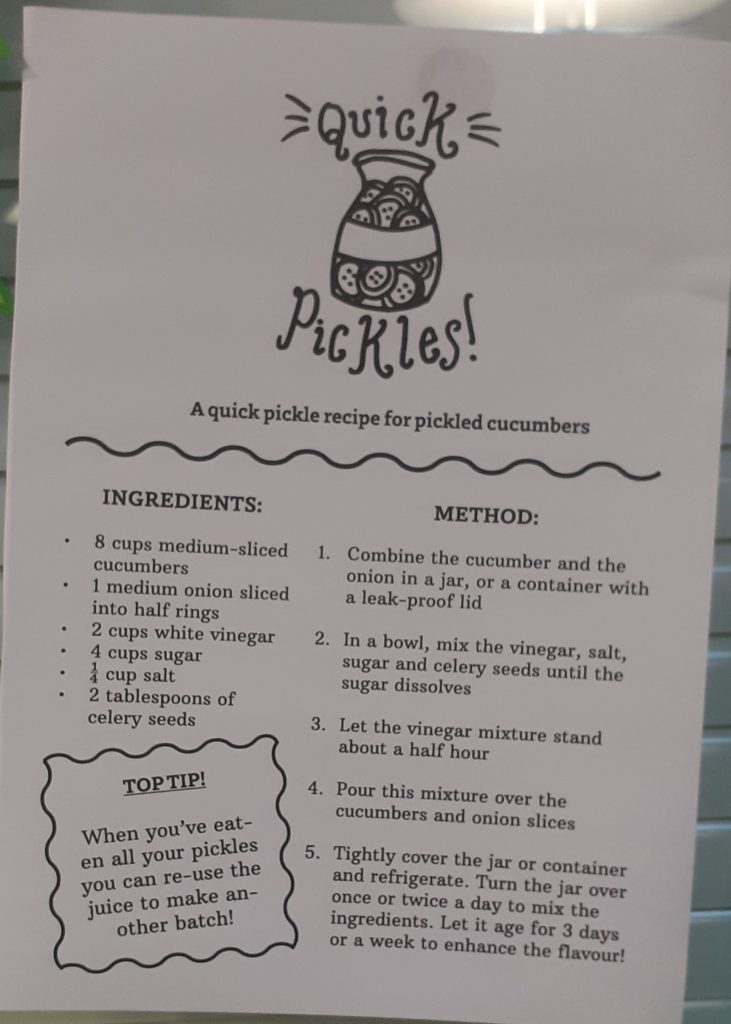 Quick
Pickles!
A quick pickle recipe for pickled cucumbers
INGREDIENTS:
• 8 cups medium-sliced
cucumbers
• 1 medium onion sliced
into half rings
• 2 cups white vinegar
• 4 cups sugar
• ¼ cup salt
• 2 tablespoons of
celery seeds
TOP TIP!
When you've eat-
en all your pickles
you can re-use the
juice to make an-
other batch!
METHOD:
1. Combine the cucumber and the
onion in a jar, or a container with
a leak-proof lid
2. In a bowl, mix the vinegar, salt,
sugar and celery seeds until the
sugar dissolves
3. Let the vinegar mixture stand
about a half hour
4. Pour this mixture over the
cucumbers and onion slices
5. Tightly cover the jar or container
and refrigerate. Turn the jar over
once or twice a day to mix the
ingredients. Let it age for 3 days
or a week to enhance the flavour!